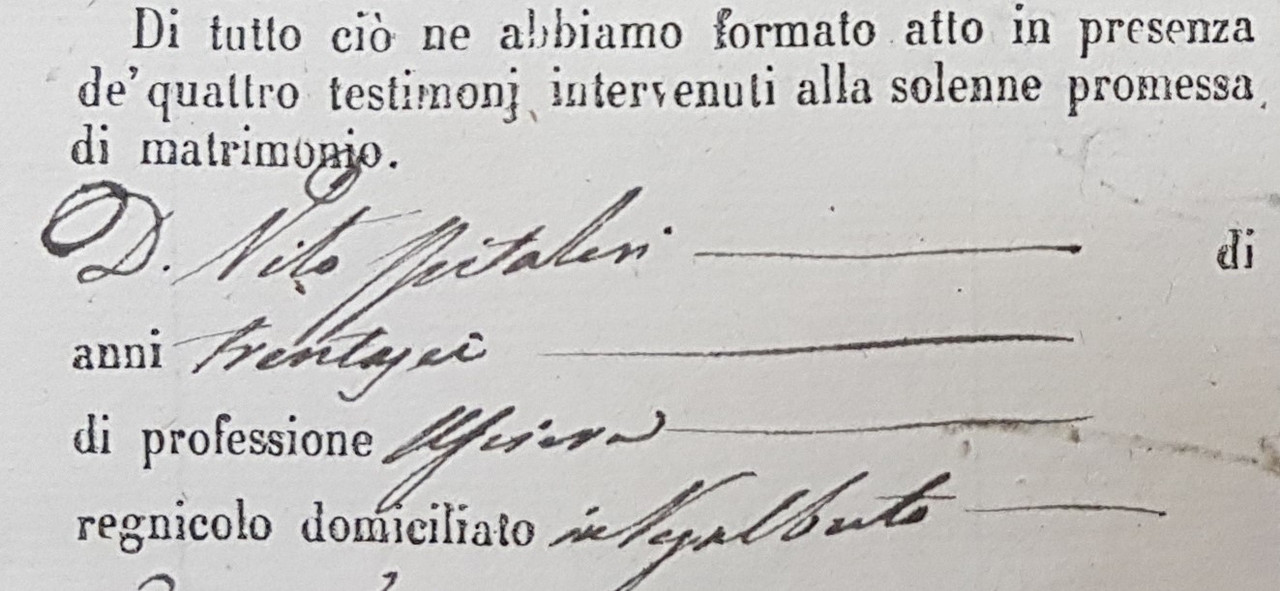 Di tutto ciò ne abbiamo formato atto in presenza
de' quattro testimonj intervenuti alla solenne promessa
di matrimonio.
D. Vito Spitaleri di
anni trentasei
di professione
regnicolo domiciliato in Regalbuto